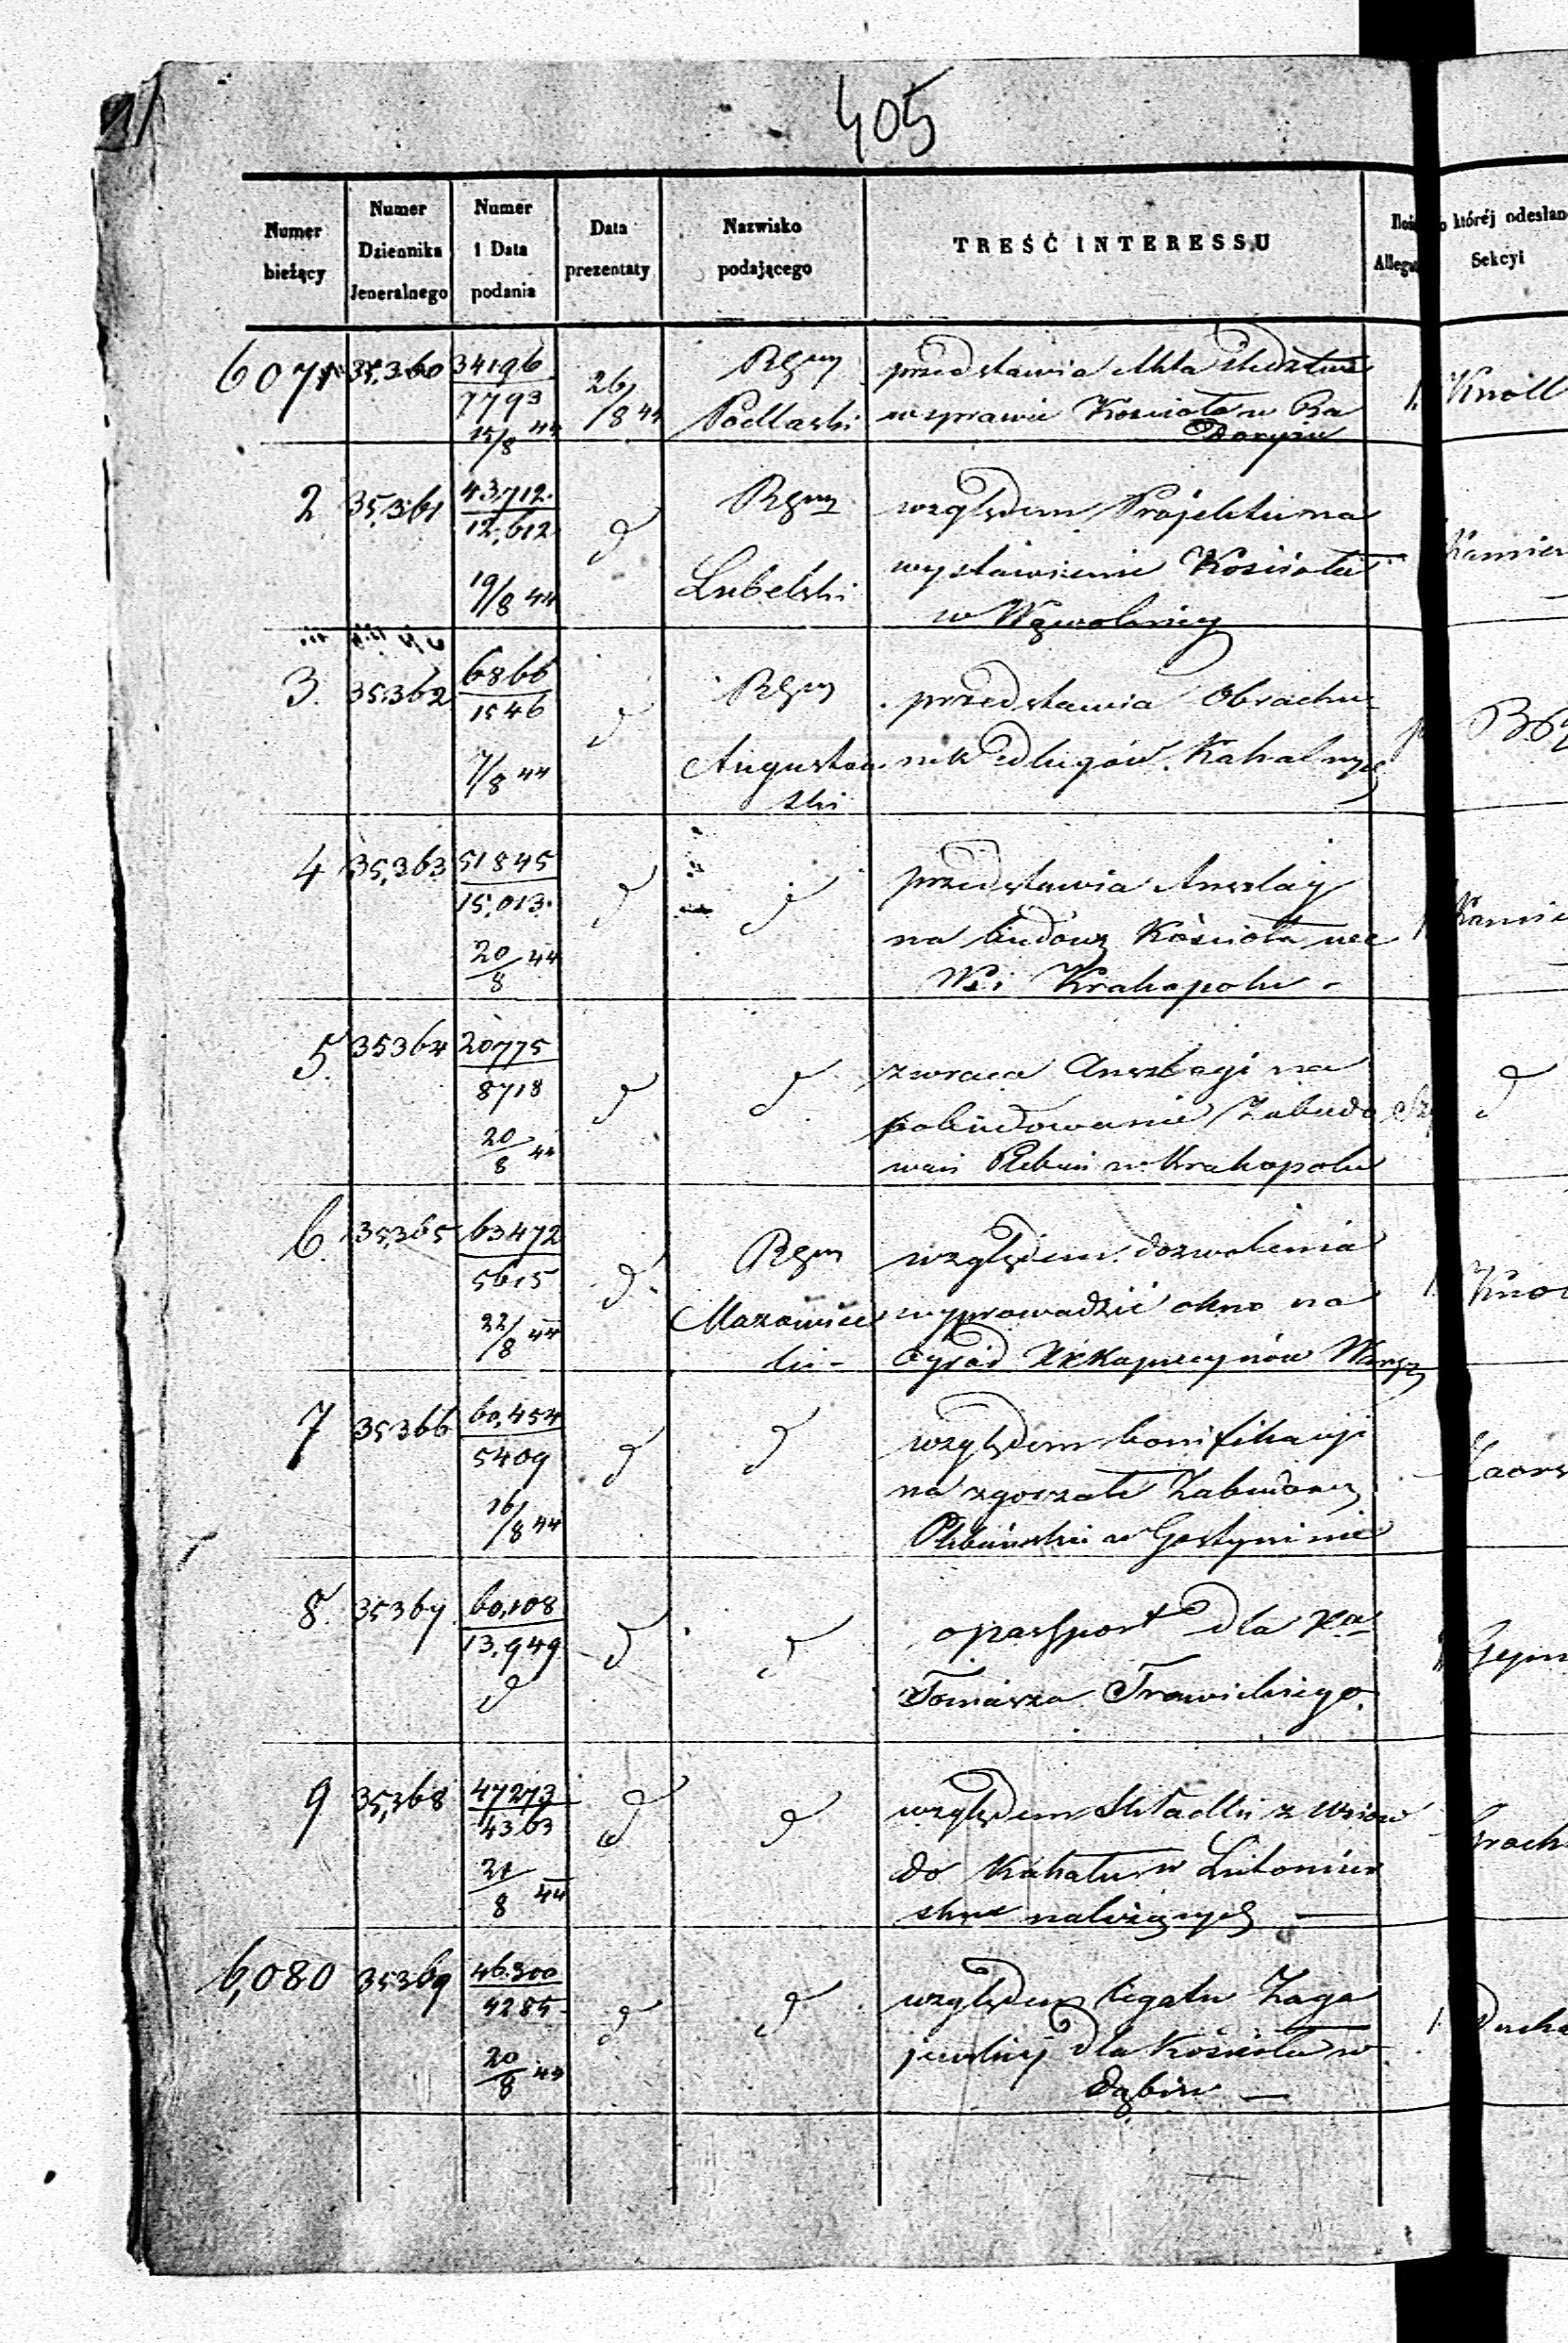 405
Numer bieżący
Numer Dziennika Jeneralnego
Numer i Data podania
Data prezentaty
Nazwisko podającego
TREŚĆ INTERESSU
której odesłan
Sekcyi
6071 35,360 34196 / 7793 15/8 44 26/8 44 Rgm Podlaski
przedstawia Akta śledztwa
w sprawie Kościoła w Ra
2 35,361 43,712 / 12,612 19/8 44 d Rgm Lubelski
względem Projektu na
wystawienie Kościoła
w Wąwolnicy
3. 35362 6866 / 1546 7/8 44 d Rgm Augustow
ski
przedstawia Obrachu
nek długów Kahalnych
4 35,363 51845 / 15,013 20/8 44 d d
przedstawia Anszlag
na budowę Kościoła we
Wsi Krakopolu
5. 35364 20775 / 8718 20/8 44 d d
zwraca Anszlagi na
pobudowanie Zabudo
wań Pleban w Krakopolu
d
6. 35,365 63472 / 5615 22/8 44 d Rgm Mazowiec
ki
względem dozwolenia
wyprowadzić okno na
Ogród XX Kapucynów Warsz
7 35366 60,454 / 5409 16/8 44 d d
względem bonifikacji
na zgorzałe Zabudowa
Plebańskie w Gostyninie
8. 35367 60,108 / 13,949 d d d
o passport dla Xa
Tomasza
9 35,368 47273 / 4363 21/8 44 d d
względem Składki z
do Kahału w Lutomier
sku należących
6,080 35369 46,300 / 4285 20/8 44 d d
względem legatu Zaga
jewskiej dla Kościoła w
Dąbiu